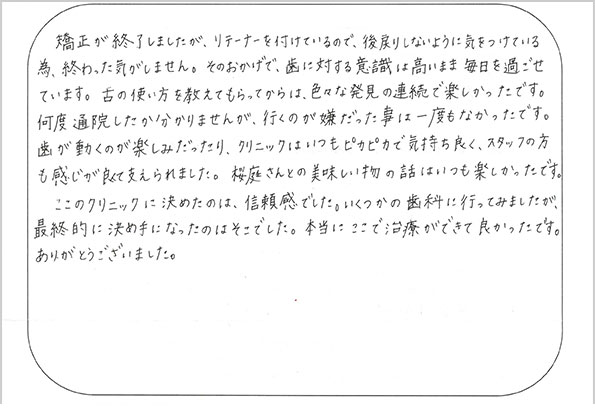 矯正が終了しましたが、リテーナーを付けているので、後戻りしないように気をつけている
為、終わった気がしません。そのおかげで、歯に対する意識は高いまま毎日を過ごせ
ています。舌の使い方を教えてもらってからは、色々な発見の連続で楽しかったです。
何度通院したか分かりませんが、行くのが嫌だった事は一度もなかったです。
歯が動くのが楽しみだったり、クリニックはいつもピカピカで気持ち良く、スタッフの方
も感じが良くて支えられました。桜庭さんとの美味しい物の話はいつも楽しかったです。
ここのクリニックに決めたのは、信頼感でした。いくつかの歯科に行ってみましたが、
最終的に決め手になったのはそこでした。本当にここで治療ができて良かったです。
ありがとうございました。